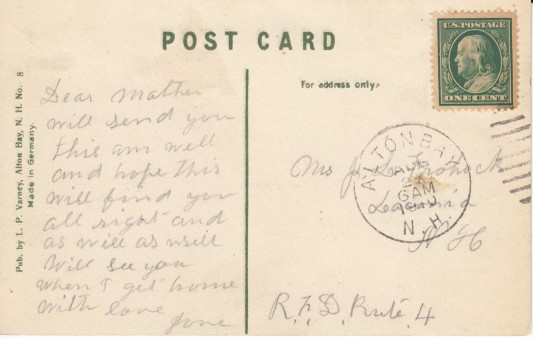 POST CARD
For address only.
U.S. POSTAGE
ONE CENT
Pub. by L. P. Varney, Alton Bay, N. H. No. 8
Made in Germany.
Dear Mother
will send you
this am well
and hope this
will find you
all right and
as well as
Will see you
when I get home
with love
ALTON BAY
AUG
6AM
1910
N. H.
Laconia
N H
R. F. D. Route 4